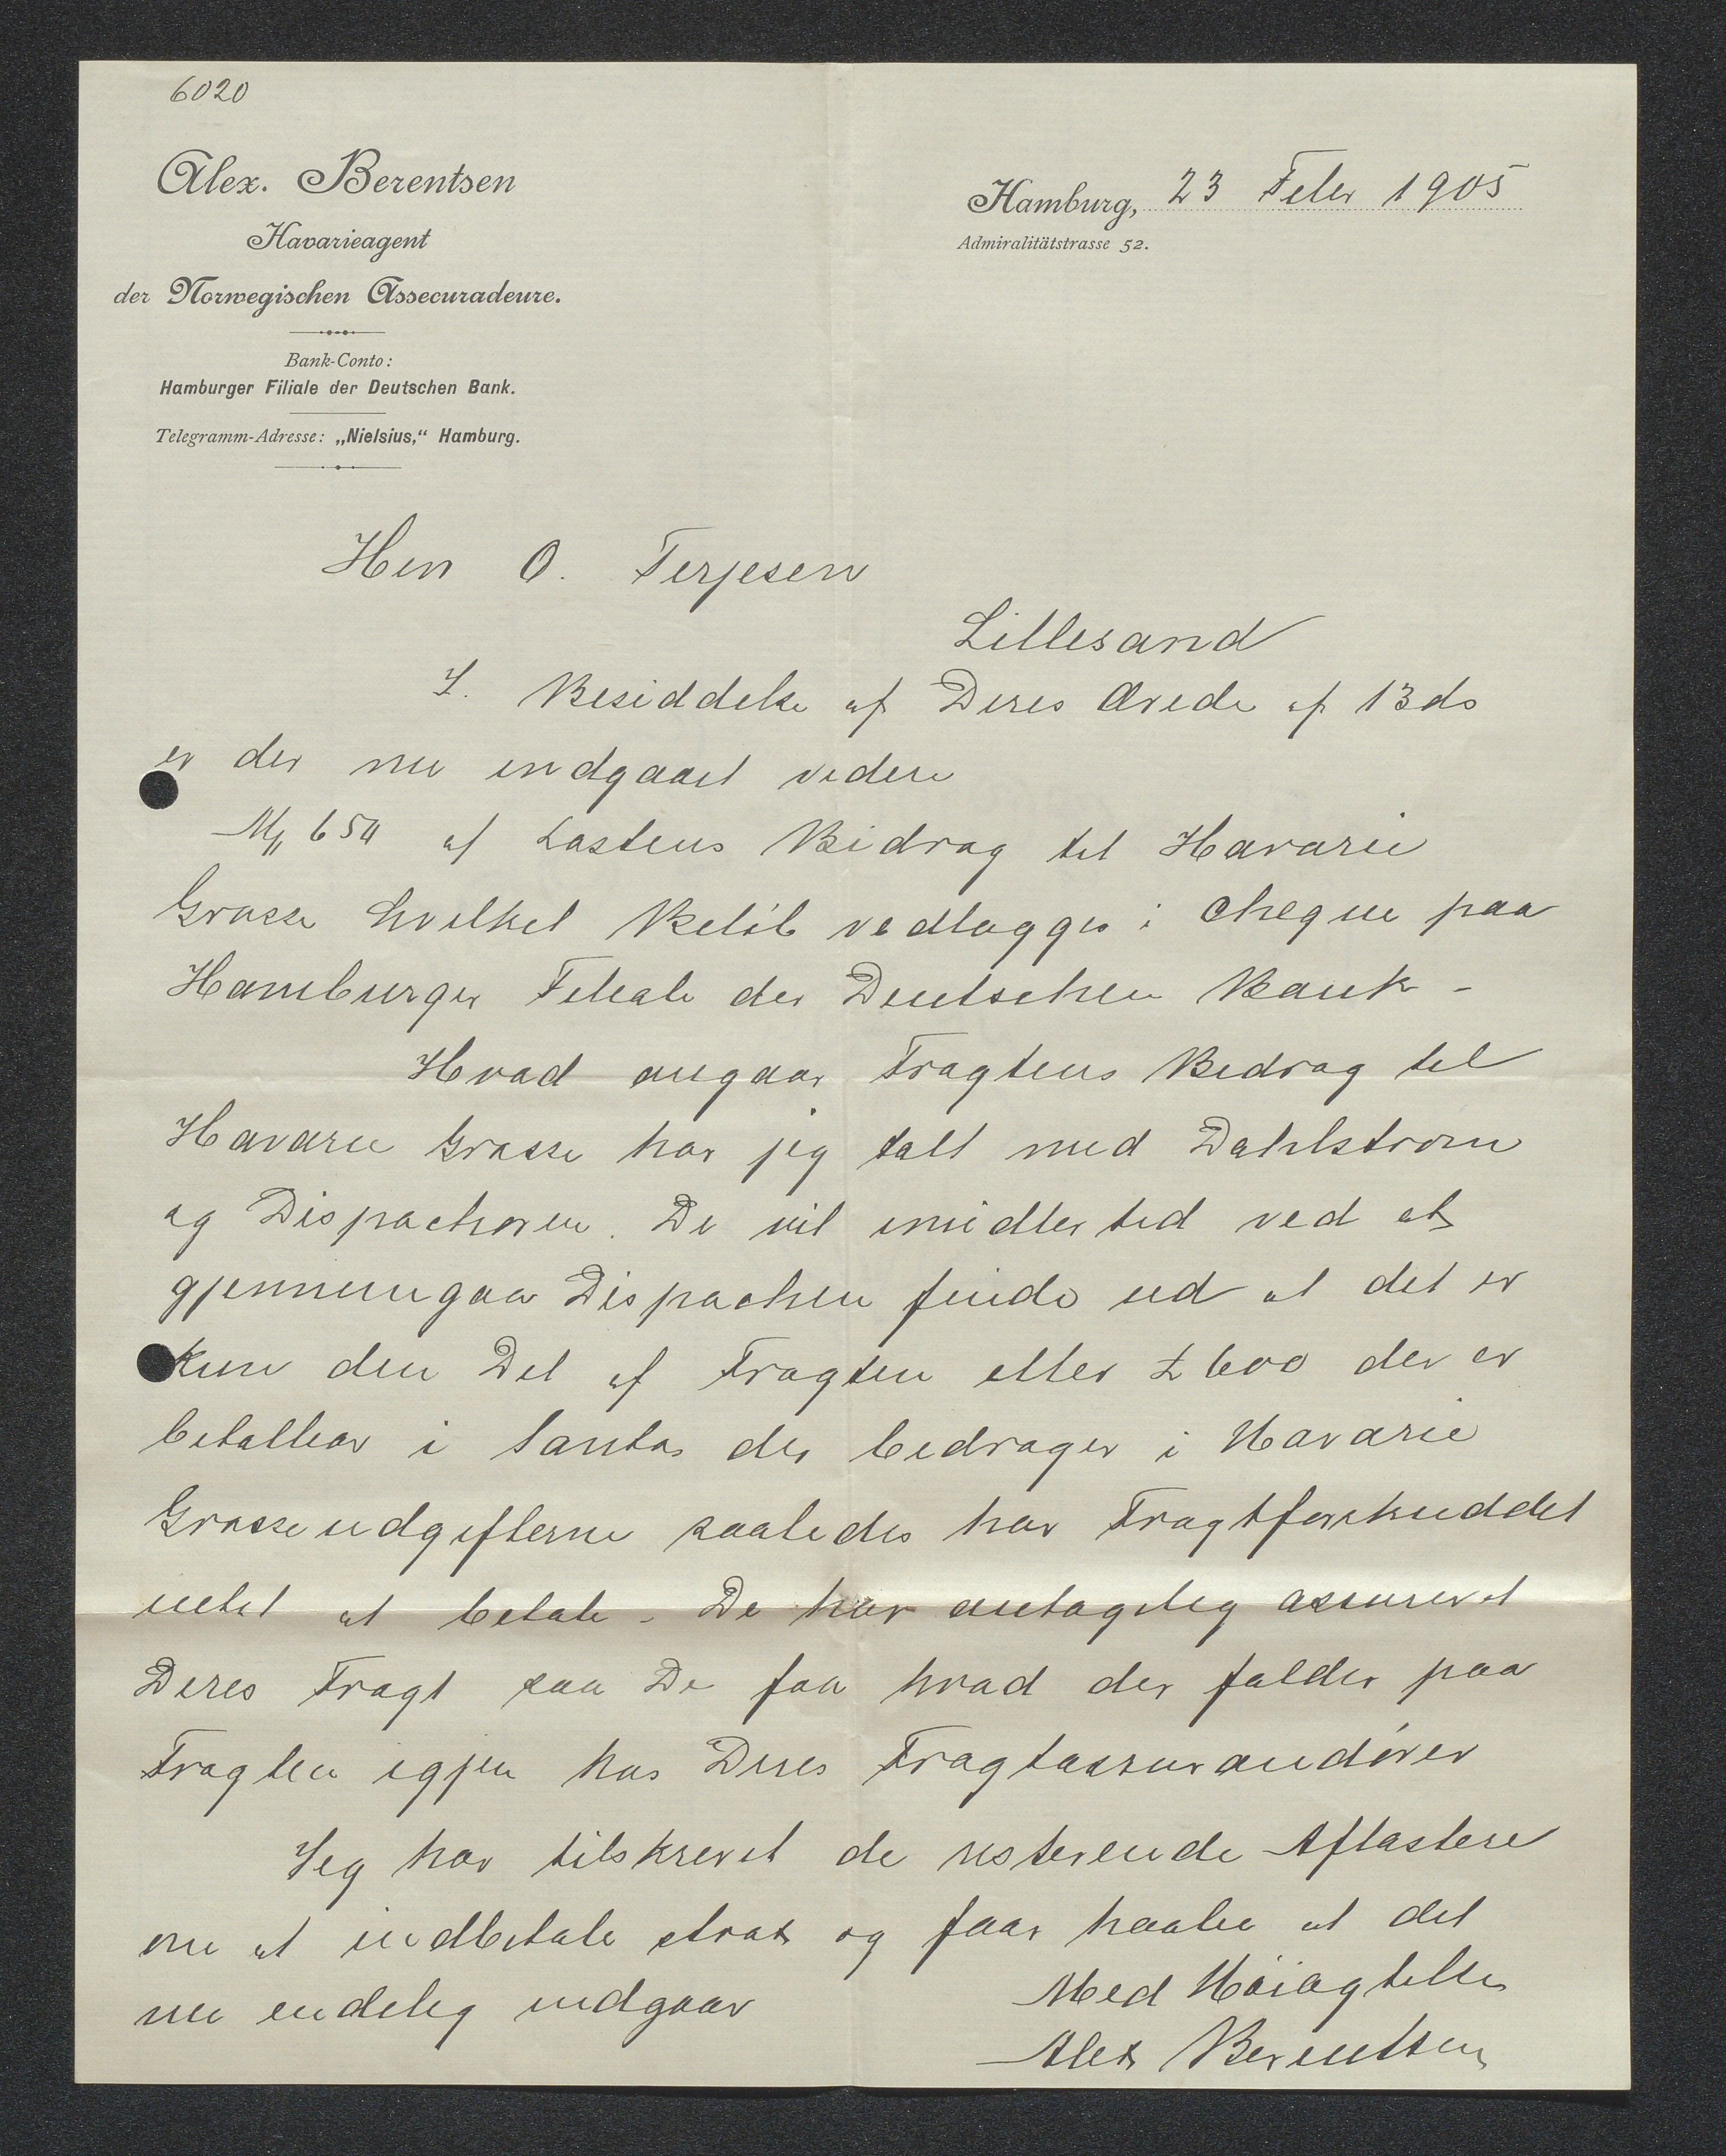 6020
Alex. Berentsen
Havarieagent
der Norwegischen Assecuradeure.
Bank-Conto:
Hamburger Filiale der Deutschen Bank.
Telegramm-Adresse: „Nielsius,“ Hamburg.
Hamburg, 23 Feber 1905
Admiralitätstrasse 52.
Herr O. Terjesen
Lillesand
I Besiddelse af Deres Ærede af 13 ds
er der nu indgaaet videre
M 654 af Lastens Bidrag til Havarie
Grosse hvilket Beløb vedlægges i Cheque paa
Hamburger Filiale der Deutschen Bank -
Hvad angaar Fragtens Bidrag til
Havarie Grosse har jeg talt med Dahlstrøm
og Dispachøren. De vil imidlertid ved at
gjennemgaa Dispachen finde ud at det er
kun den Del af Fragten eller £ 600 der er
betalbar i Santos der bidrager i Havarie
Grosse udgifterne saaledes har Fragtforskuddet
intet at betale - De har antagelig assureret
Deres Fragt saa De faar hvad der falder paa
Fragten igjen hos Deres Fragtassurandører
Jeg har tilskrevet de resterende Aflastere
om at indbetale strax og faar haabe at det
nu endelig indgaar
Med Høiagtelse
Alex Berentsen